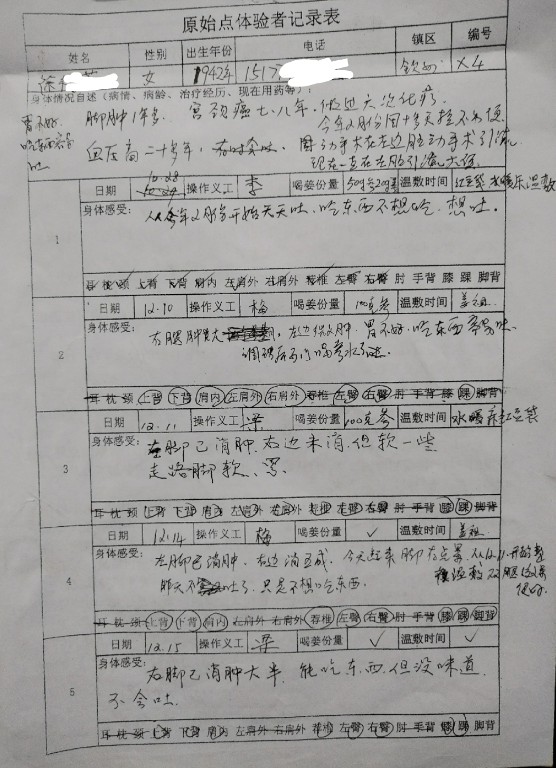 原始点体验者记录表
姓名 性别 出生年份 电话 镇区 编号
徐 女 1942年 1517 钦州 X4
身体情况自述（病情、病龄、治疗经历、现在用药等）：
胃不好. 脚肿1年多. 宫颈癌七、八年.做过六次化疗
吃东西容易吐 今年2月份因
血压高二十多年， 手术在左边 手术引流
现在一直在左
日期 10.28 操作义工 李 喝姜份量 50g 温敷时间 红豆袋 温敷
1
身体感受： 从今年2月份开始天天吐、吃东西不想吃、想吐。
耳 枕 颈 上背 下背 肩内 左肩外 右肩外 荐椎 左臀 右臀 肘 手背 膝 踝 脚背
日期 12.10 操作义工 梅 喝姜份量 100克参 温敷时间
2
身体感受： 右腿肿大 左边 肿. 胃不好.吃东西容易吐
耳 枕 颈 上背 下背 肩内 左肩外 右肩外 荐椎 左臀 右臀 肘 手背 膝 踝 脚背
日期 12.11 操作义工 梁 喝姜份量 100克参 温敷时间 水暖 红豆袋
3
身体感受： 左脚已消肿.右边未消.但软一些
走路脚软、累.
耳 枕 颈 上背 下背 肩内 左肩外 右肩外 荐椎 左臀 右臀 肘 手背 膝 踝 脚背
日期 12.14 操作义工 梅 喝姜份量 ✓ 温敷时间
4
身体感受： 左脚已消肿. 右边消五成. 今天起来脚有点累. 从12.11开始
昨天不吐了.只是不想吃东西.
耳 枕 颈 上背 下背 肩内 左肩外 右肩外 荐椎 左臀 右臀 肘 手背 膝 踝 脚背
日期 12.15 操作义工 梁 喝姜份量 ✓ 温敷时间 ✓
5
身体感受： 右脚已消肿大半. 能吃东西.但没味道
不会吐.
耳 枕 颈 上背 下背 肩内 左肩外 右肩外 荐椎 左臀 右臀 肘 手背 膝 踝 脚背